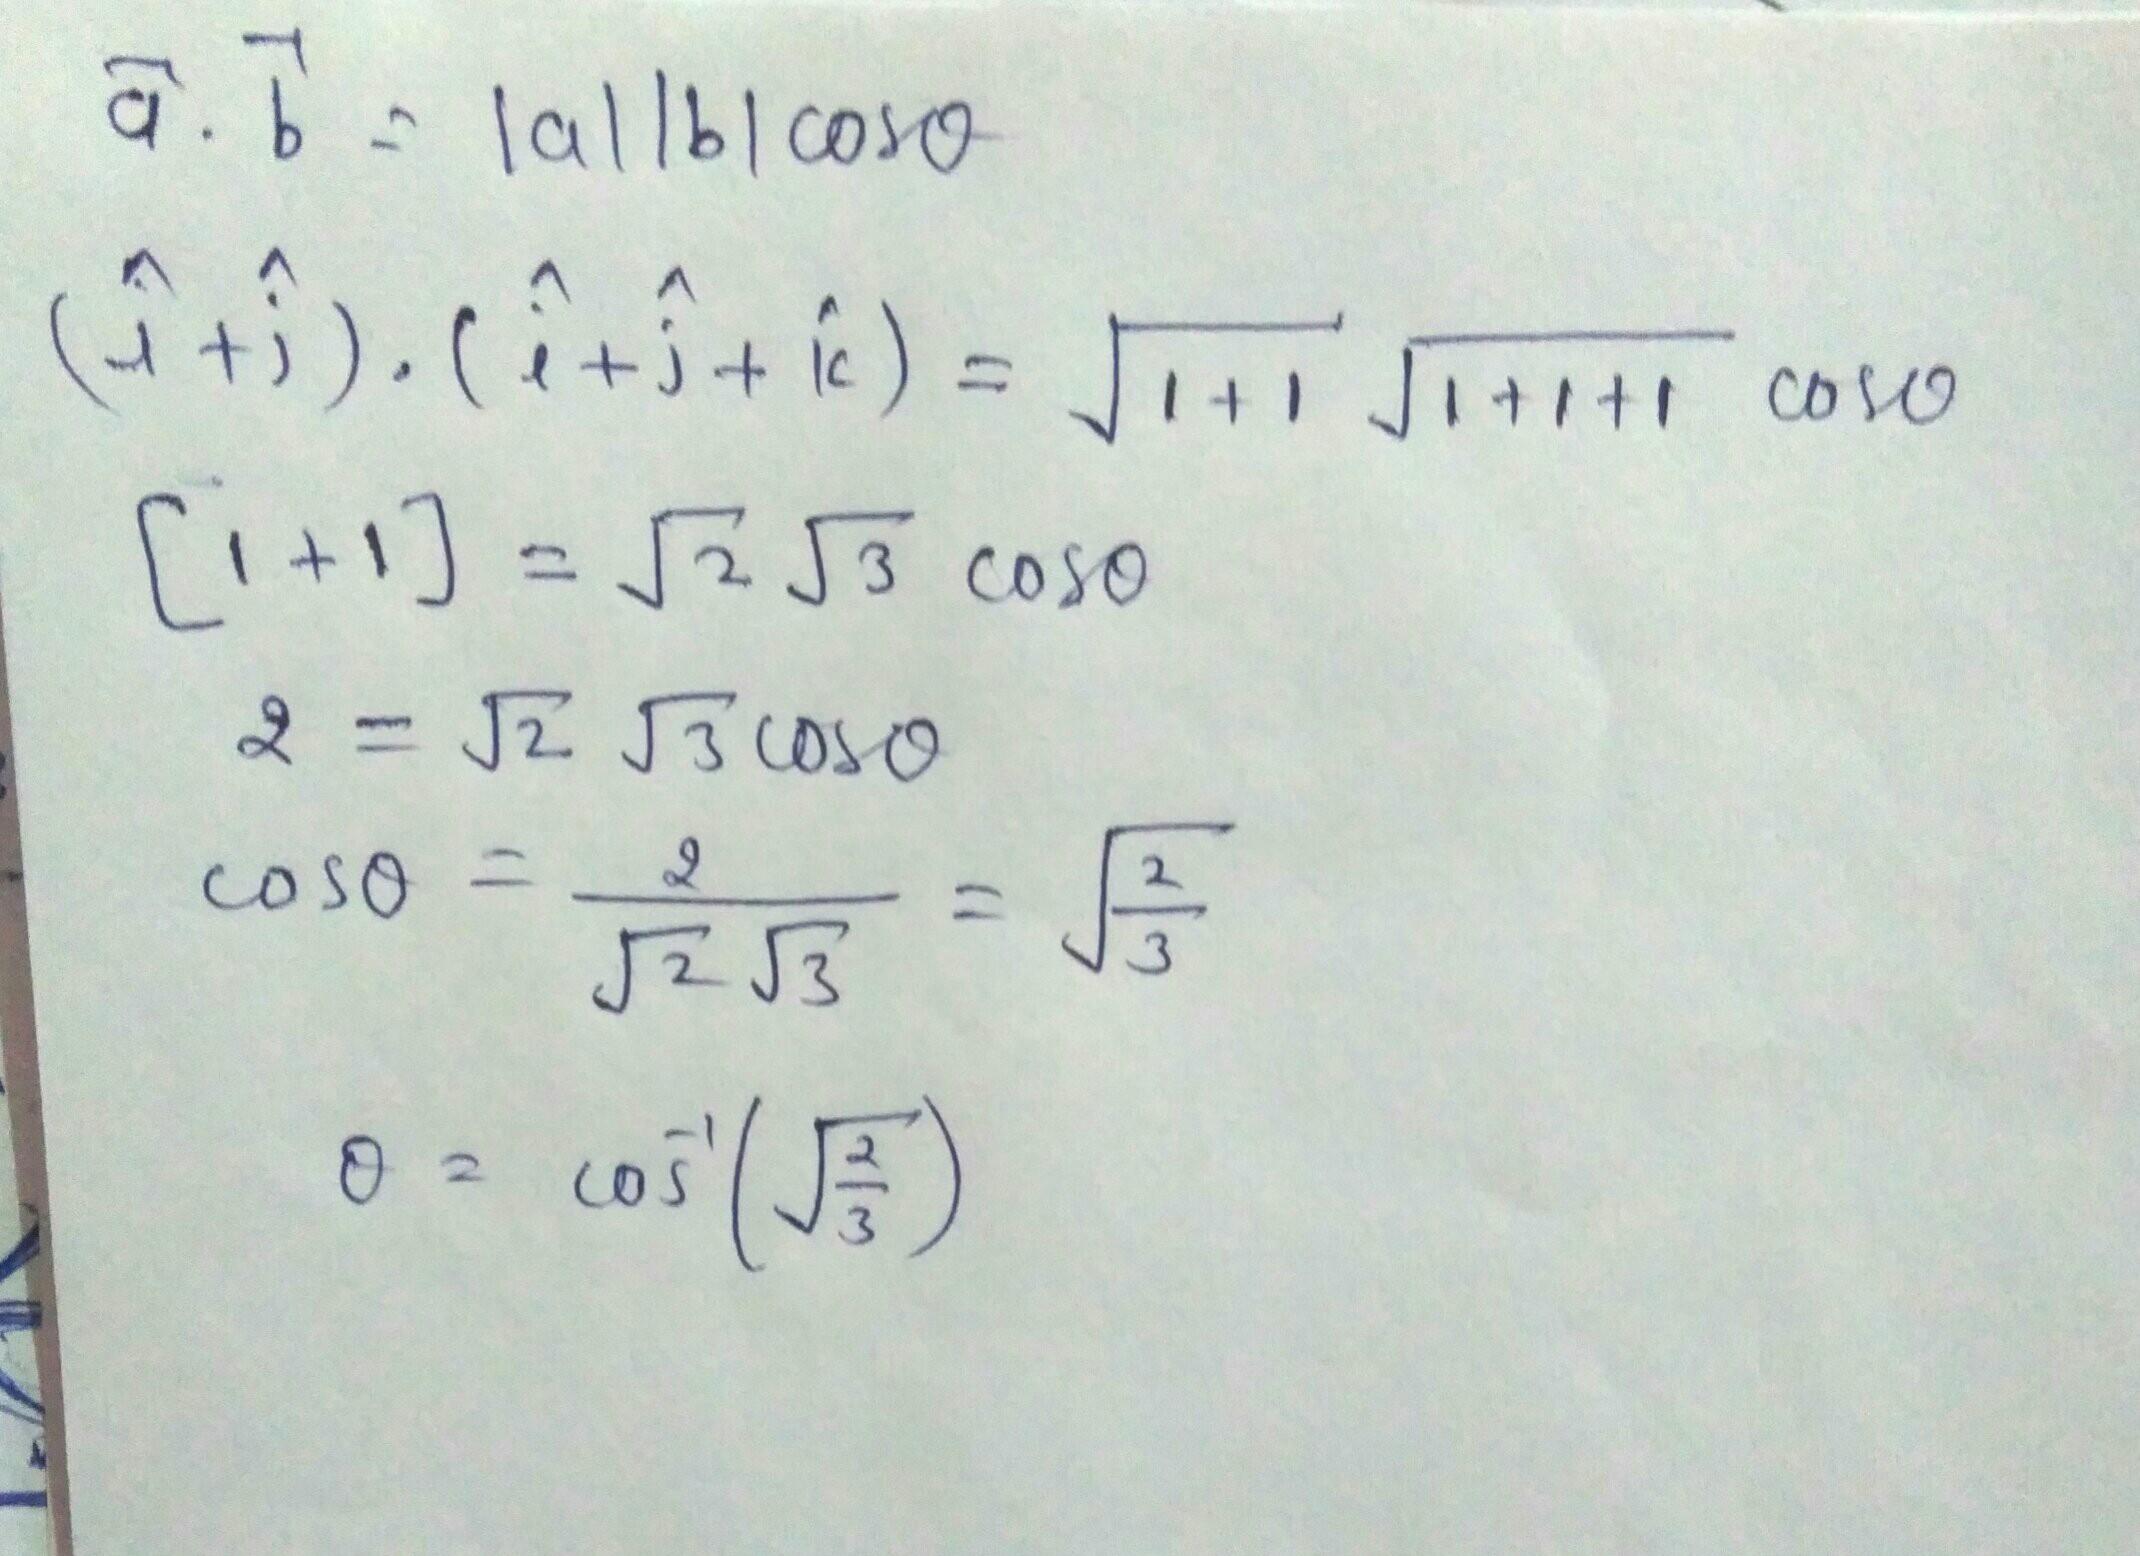 a⃗ . b⃗ = |a||b| cosθ
(î+ĵ).(î+ĵ+k̂) = √(1+1) √(1+1+1) cosθ
[1+1] = √2 √3 cosθ
2 = √2 √3 cosθ
cosθ = 2/(√2 √3) = √(2/3)
θ = cos⁻¹(√(2/3))